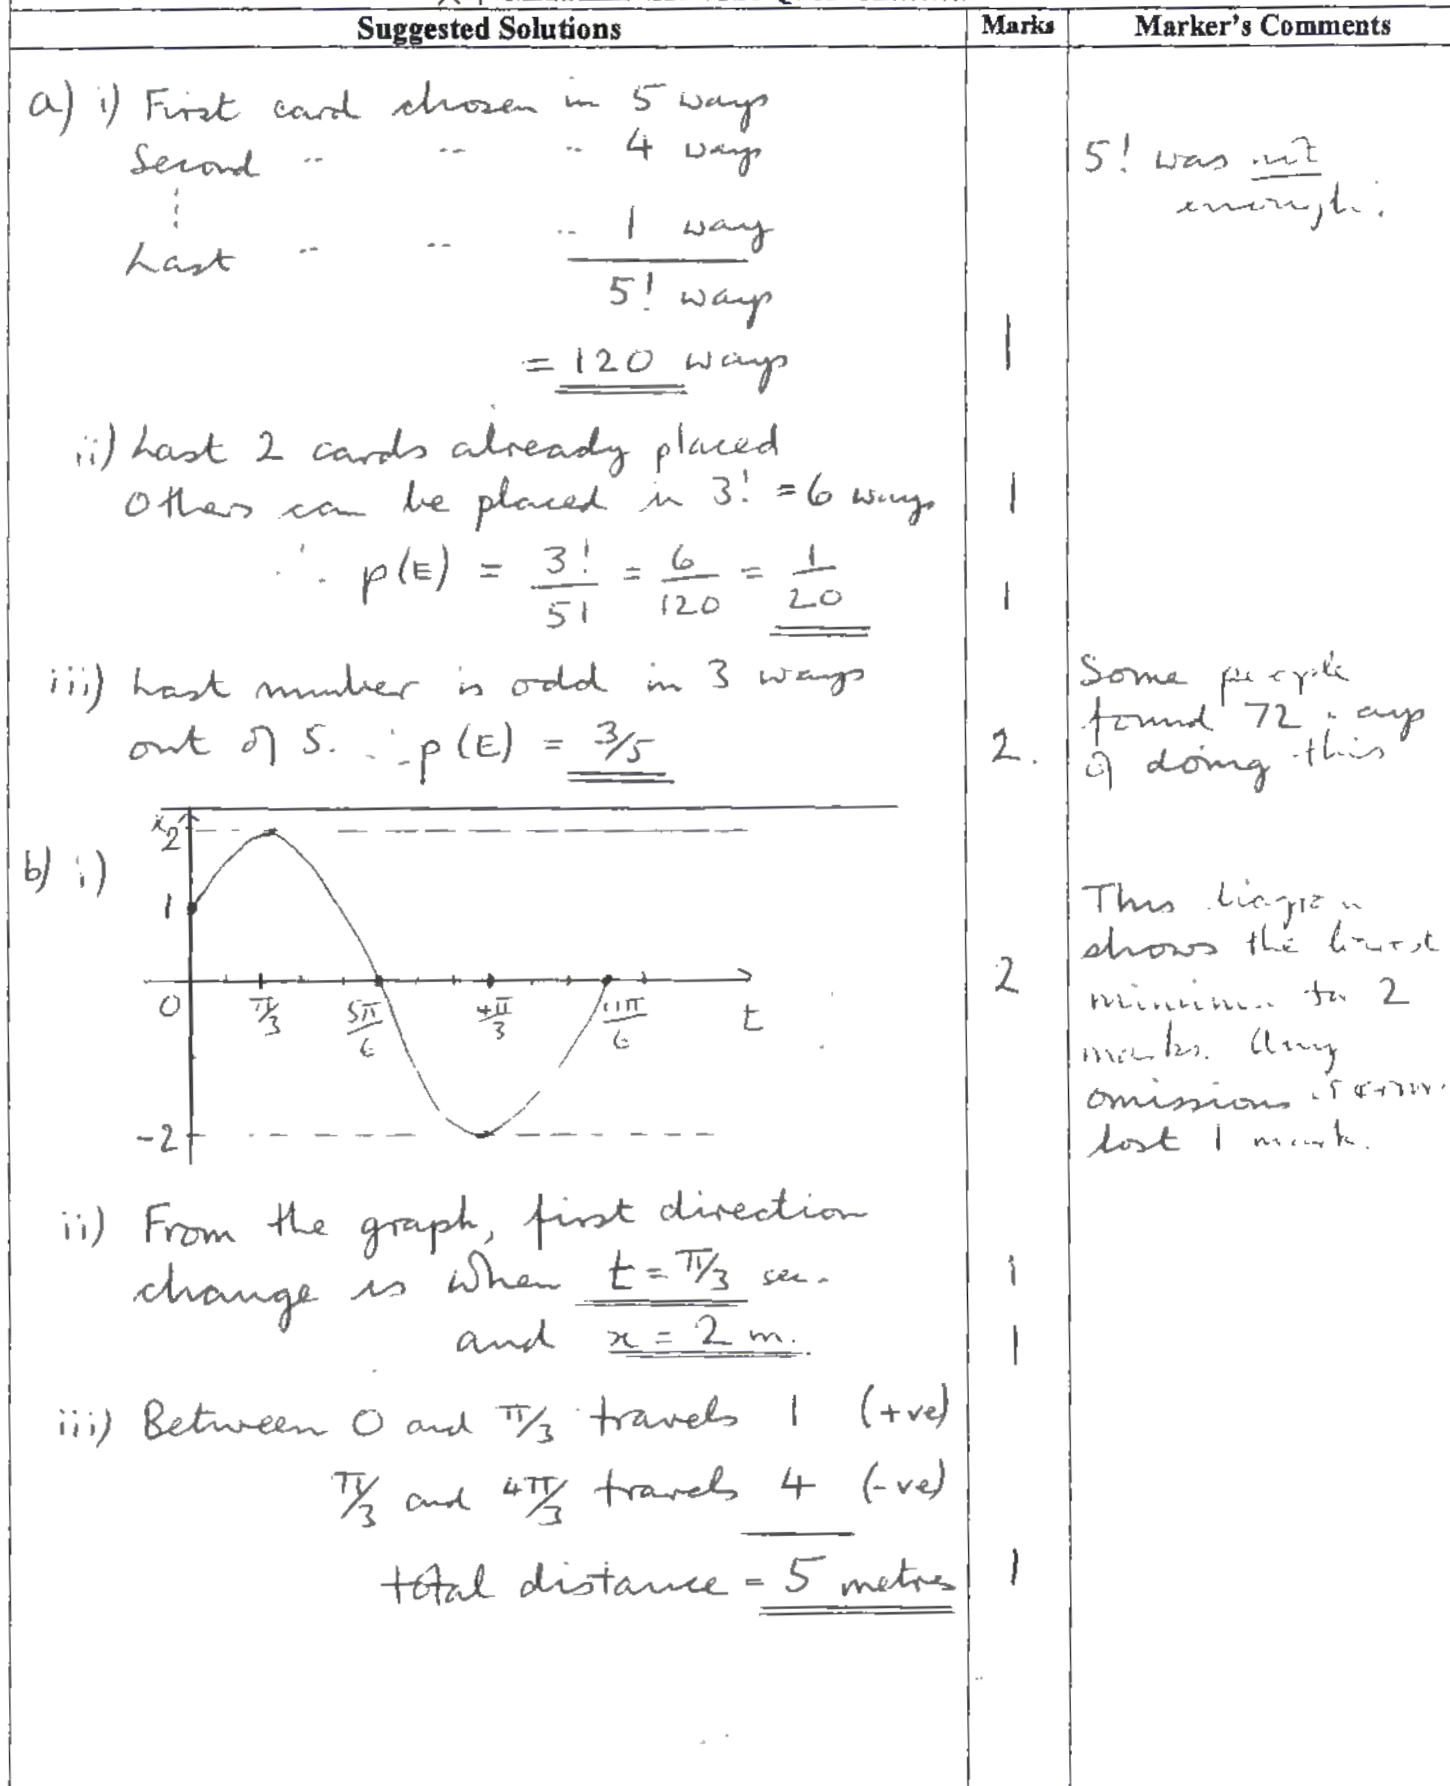 Suggested Solutions
Marks
Marker's Comments
a) i) First card chosen in 5 ways
Second " " " 4 ways
Last " " " 1 way
5! ways
= 120 ways
1
5! was not
enough.
ii) Last 2 cards already placed
Others can be placed in 3! = 6 ways
1
∴ p(E) = 3!/5! = 6/120 = 1/20
1
iii) Last number is odd in 3 ways
out of 5. ∴ p(E) = 3/5
2.
Some people
found 72 ways
of doing this
b) i)
x
2
1
0
π/3
5π/6
4π/3
11π/6
t
-2
2
This diagram
shows the lowest
minimum for 2
marks. Any
omissions
lost 1 mark.
ii) From the graph, first direction
change is when t = π/3 sec.
1
and x = 2 m.
1
iii) Between 0 and π/3 travels 1 (+ve)
π/3 and 4π/3 travels 4 (-ve)
total distance = 5 metres
1